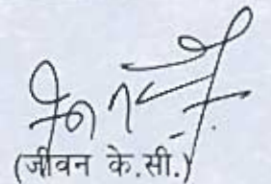 (जीवन के.सी.)